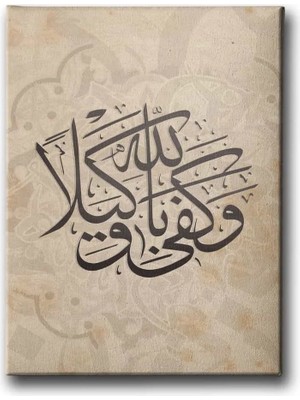 وكفى بالله وكيلا